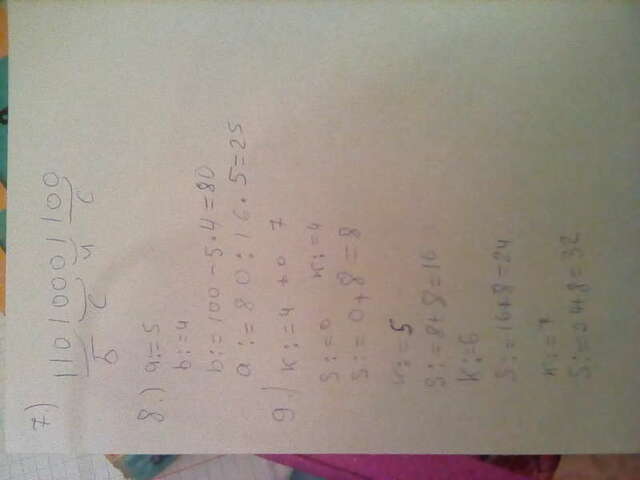 7.) 1101000 1 100
Б С Ч С
8.) a:=5
b:=4
b:=100-5·4=80
a:=80:16·5=25
9.) k:=4 to 7
S:=0 k:=4
S:=0+8=8
k:=5
S:=8+8=16
k:=6
S:=16+8=24
k:=7
S:=24+8=32